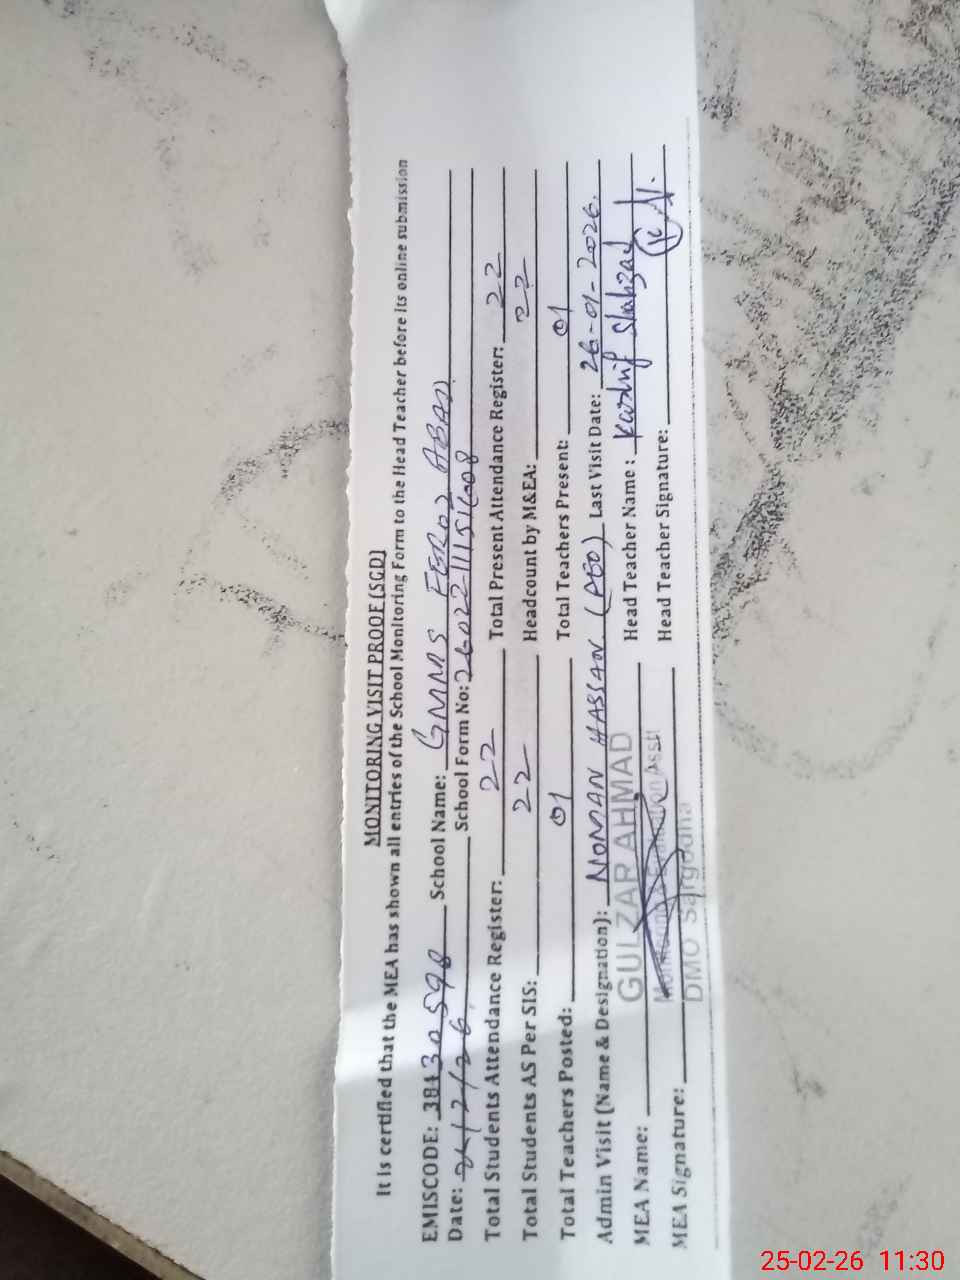 MONITORING VISIT PROOF (SGD)
It is certified that the MEA has shown all entries of the School Monitoring Form to the Head Teacher before its online submission
EMISCODE: 38430598 School Name: GMMS FEROZ ABAD
Date: School Form No:
Total Students Attendance Register: 22 Total Present Attendance Register: 22
Total Students AS Per SIS: 22 Headcount by M&EA: 22
Total Teachers Posted: 01 Total Teachers Present: 01
Admin Visit (Name & Designation): NOMAN HASSAN (AEO) Last Visit Date: 26-01-2026.
MEA Name: GULZAR AHMAD Head Teacher Name: Kashif Shahzad
Monitoring & Evaluation Asstt
MEA Signature: Head Teacher Signature:
DMO Sargodha
25-02-26 11:30